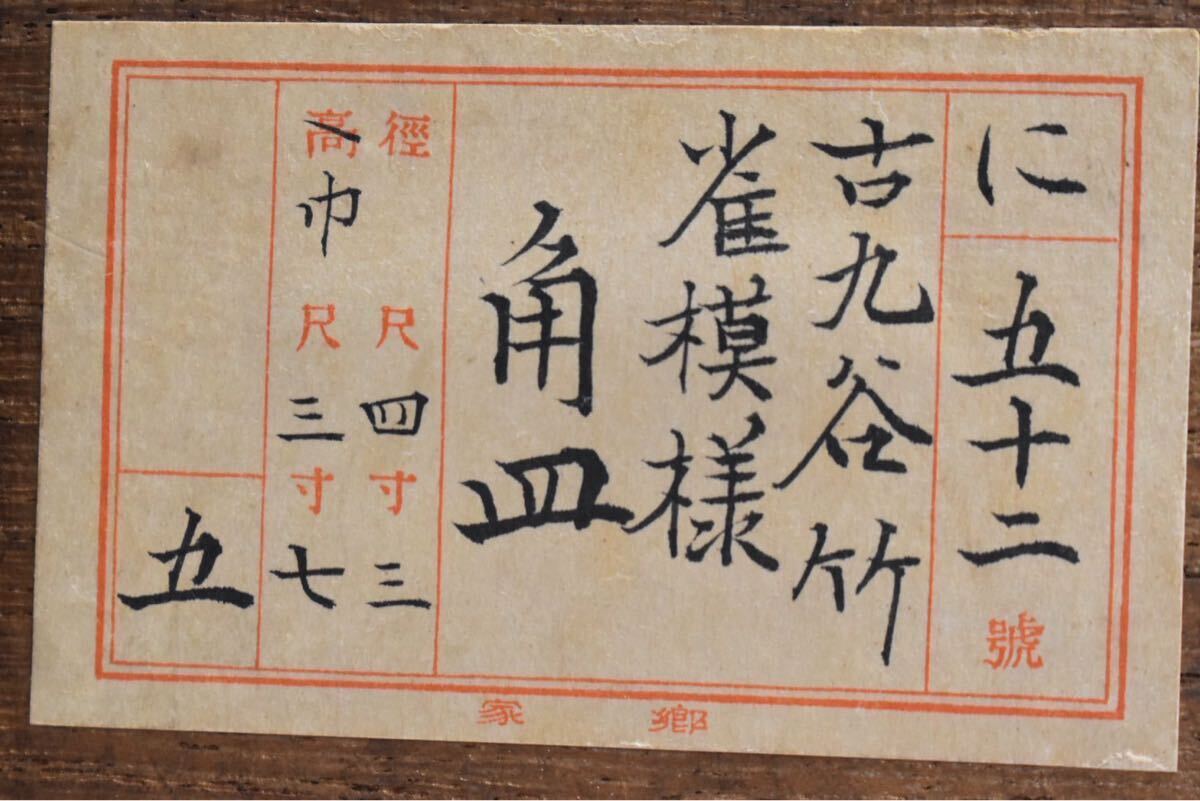 に
五十二號
古九谷竹
雀模様
角皿
徑 尺四寸三
高巾 尺三寸七
五
鄉家